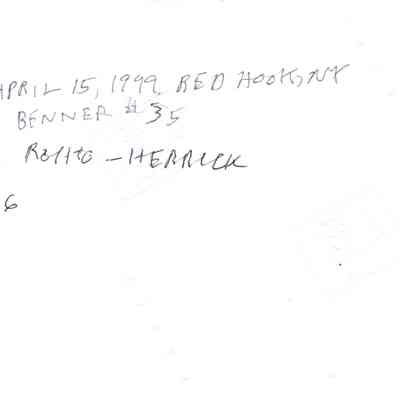 APRIL 15, 1999, RED HOOK, NY
BENNER # 35
- HERRICK
6